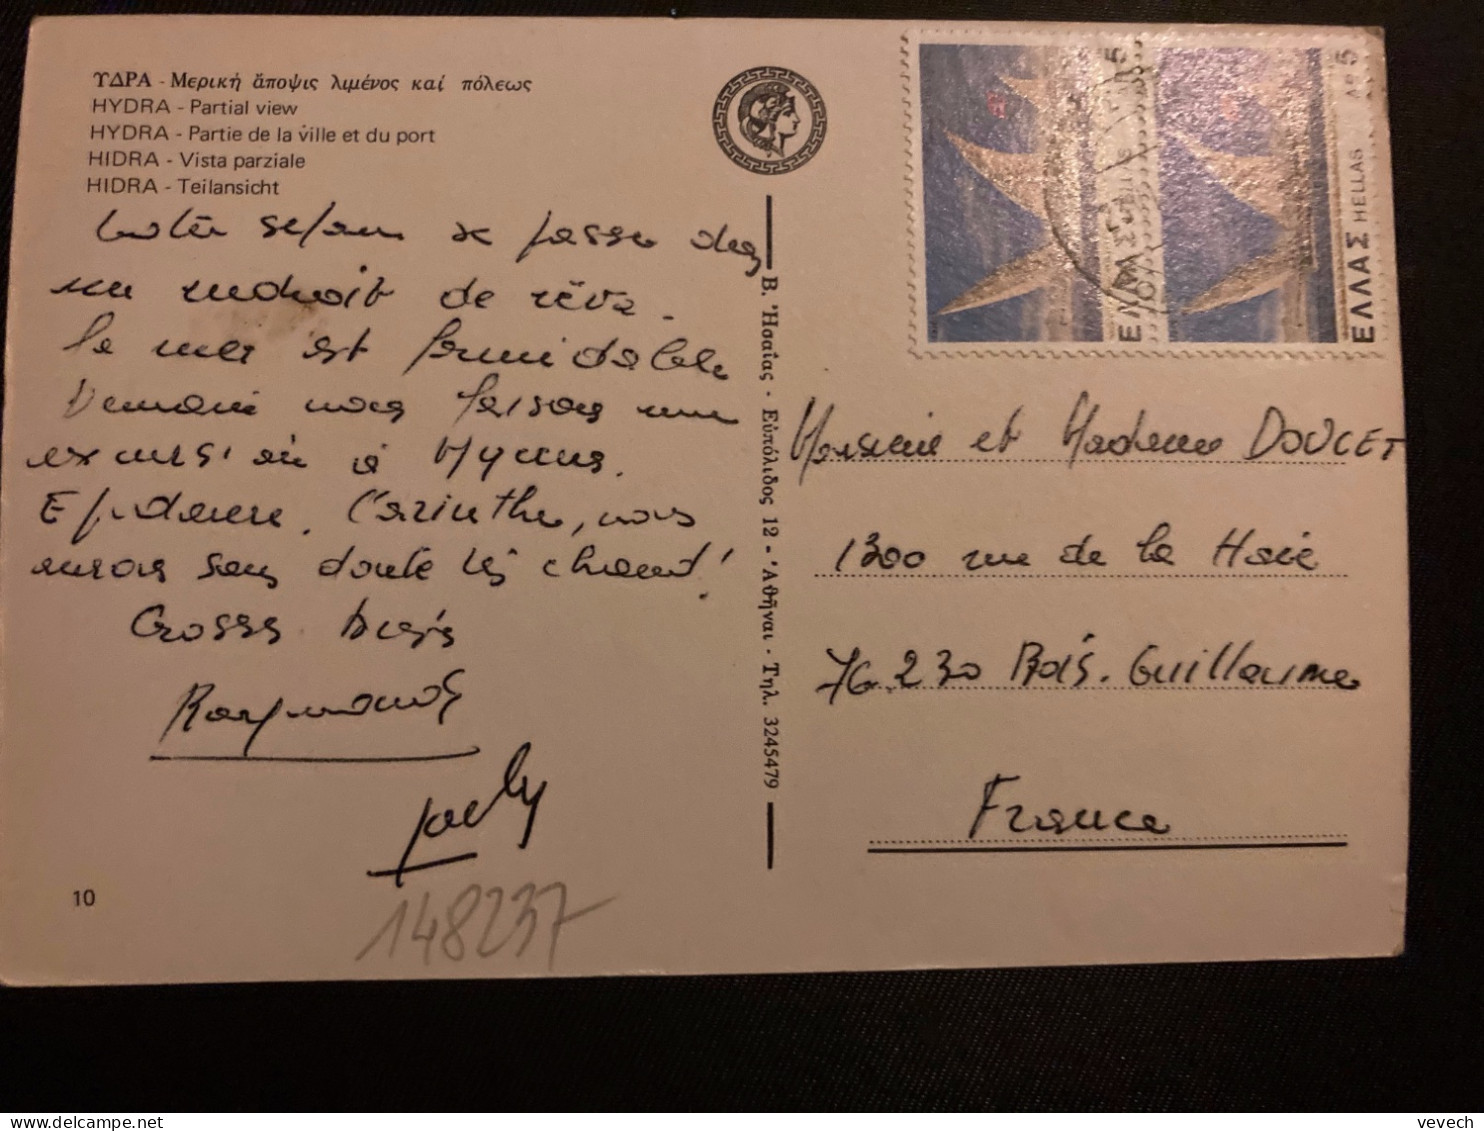 ΥΔΡΑ - Μερική ἄποψις λιμένος καί πόλεως
HYDRA - Partial view
HYDRA - Partie de la ville et du port
HIDRA - Vista parziale
HIDRA - Teilansicht
Notre séjour se passe dans
un endroit de rêve.
la mer est formidable
Demain nous faisons une
excursion à
Epidaure, Corinthe, nous
aurons sans doute très chaud!
Grosses bises
Raymonde
Jacky
148237
10
Β. Ἠσαΐας - Εὐπόλιδος 12 - Ἀθῆναι - Τηλ. 3245479
ΕΛΛΑΣ
5
ΕΛΛΑΣ HELLAS
ΔΡ 5
Monsieur et Madame DOUCET
1300 rue de la Haie
76.230 Bois.Guillaume
France
vevech